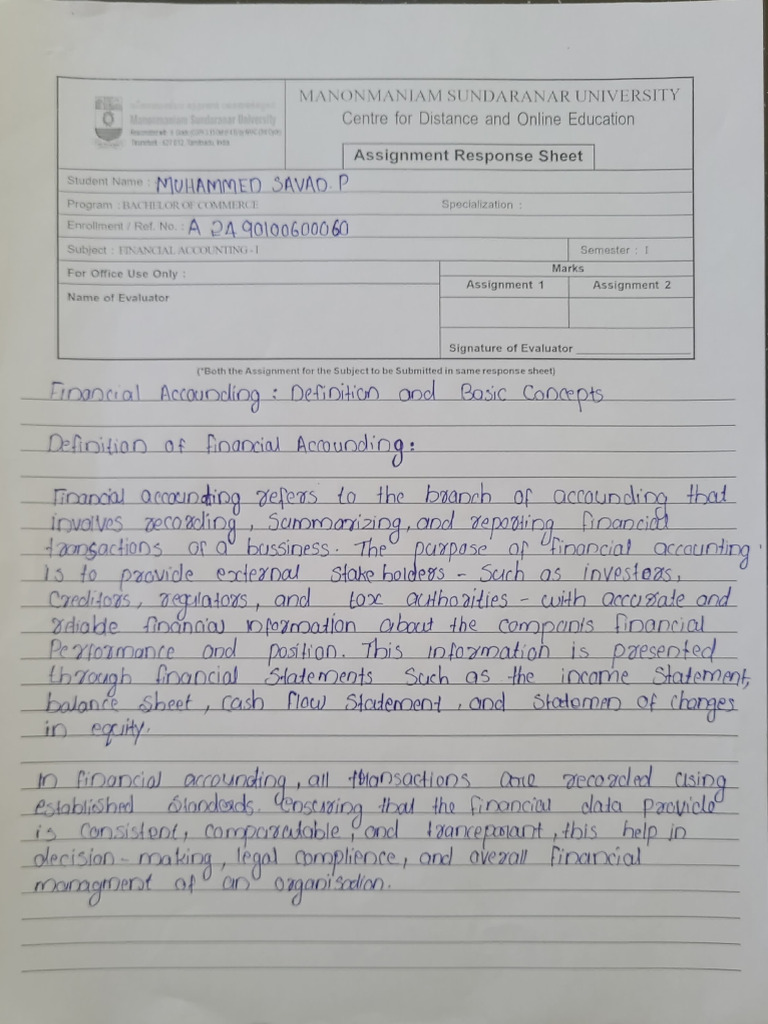 Manonmaniam Sundaranar University
MANONMANIAM SUNDARANAR UNIVERSITY
Centre for Distance and Online Education
Assignment Response Sheet
Student Name : MUHAMMED SAVAD. P
Program : BACHELOR OF COMMERCE Specialization :
Enrollment / Ref. No. : A 24 90100600060
Subject : FINANCIAL ACCOUNTING - I Semester : I
For Office Use Only : Marks
Assignment 1 Assignment 2
Name of Evaluator
Signature of Evaluator
(*Both the Assignment for the Subject to be Submitted in same response sheet)
Financial Accounding : Definition and Basic Concepts
Definition of financial Accounding :
Financial accounding refers to the branch of accounding that
involves recording, Summarizing, and reporting financial
transactions of a bussiness. The purpose of financial accounting
is to provide external stake holders - Such as investors,
Creditors, regulators, and tax authorities - with accurate and
reliable financial information about the companis financial
Performance and position. This information is presented
through financial Statements Such as the income Statement,
balance sheet, cash flow Statement, and Statemen of changes
in equity.
In financial accounding, all transactions are recorded using
established Standeds. ensuring that the financial data provide
is consistent, comparatable, and tranceparant, this help in
decision - making, legal complience, and overall financial
managment of an organisation.